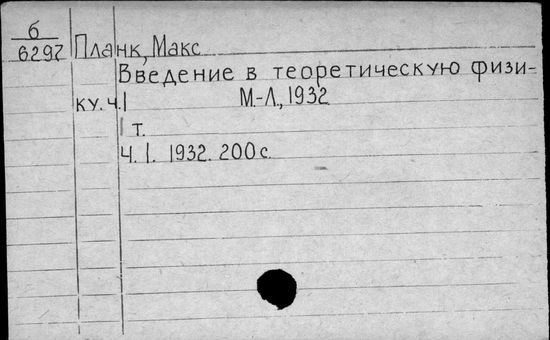 б
6297 Планк, Макс
Введение в теоретическую физи-
ку. ч. I М.-Л., 1932
1 т.
Ч. I. 1932. 200 с.